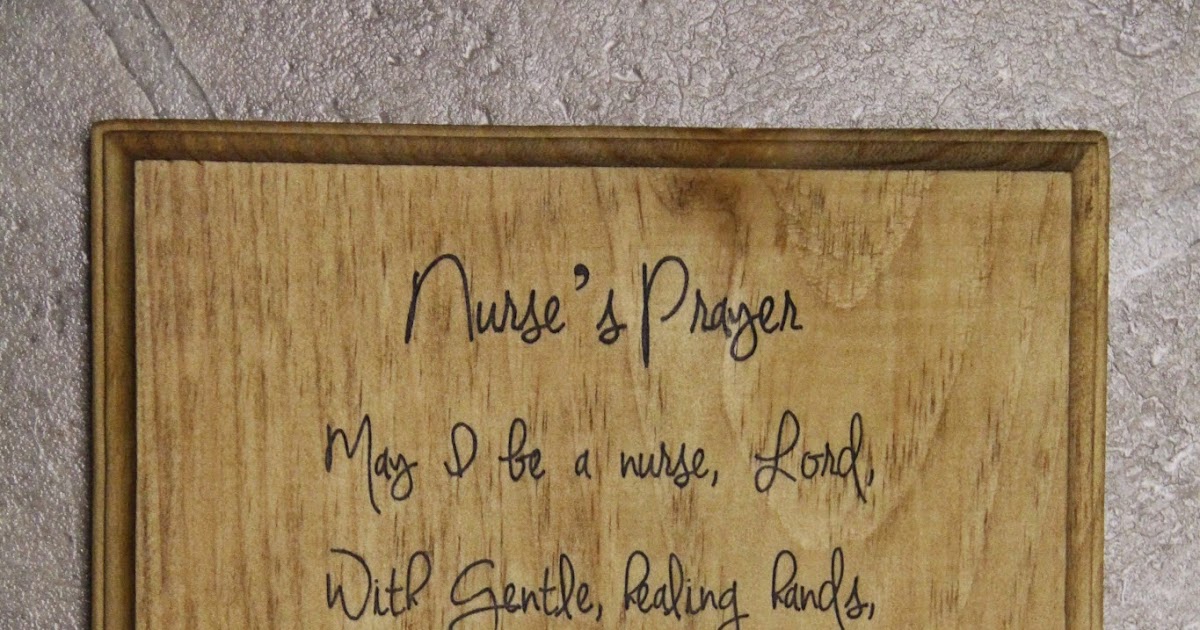 Nurse's Prayer
May I be a nurse, Lord,
With Gentle, healing hands,